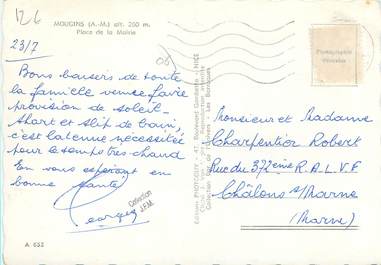 126
MOUGINS (A.-M.) alt. 260 m.
Place de la Mairie
23/7
Bons baisers de toute
la famille venue faire
provision de soleil-
short et slip de bain,
c'est la tenue nécessitée
pour le temps très chaud
En vous espérant en
bonne santé
Georges
Collection
J.F.M.
A 652
Editions PHOTOGUY - 47, Boulevard Gambetta - NICE
Monsieur et Madame
Charpentier Robert
Rue du 372ème R.A.L.V.F
Châlons s/Marne
(Marne)